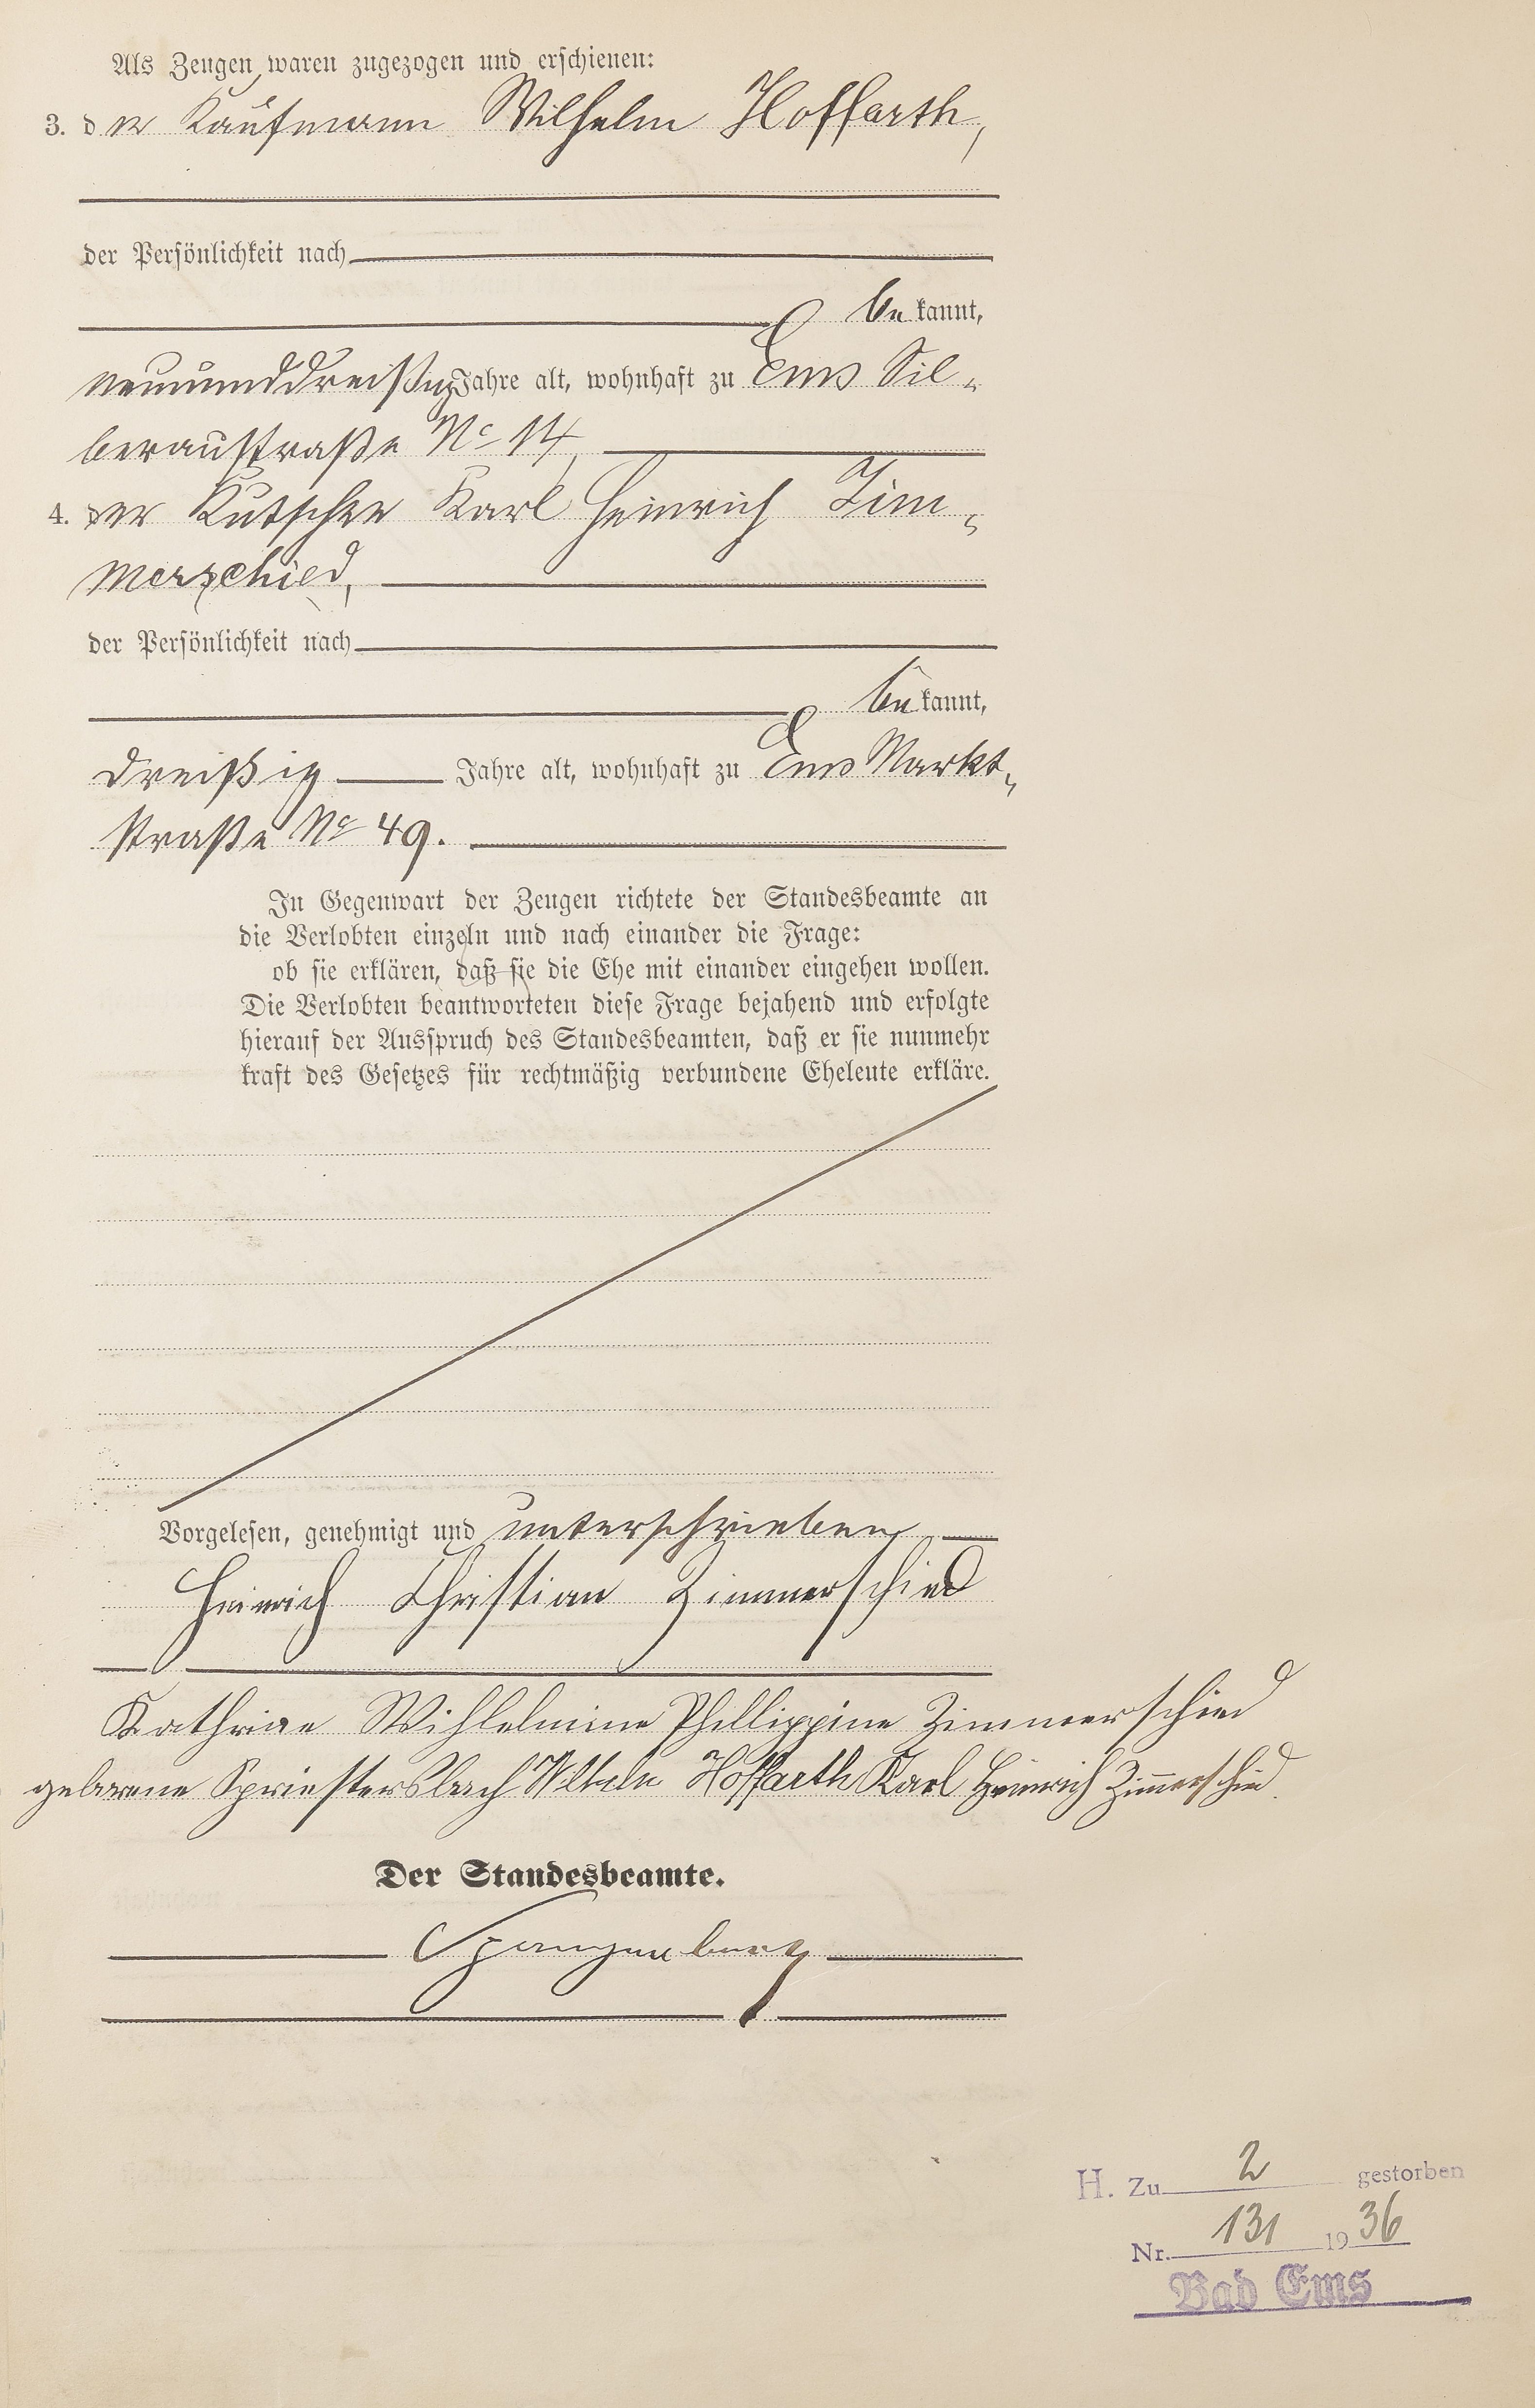 Als Zeugen waren zugezogen und erschienen:
3. der Kaufmann Wilhelm Hoffarth,
der Persönlichkeit nach
be kannt,
neununddreißig Jahre alt, wohnhaft zu Ems Sil-
beraustraße No 14,
4. der Kutscher Karl Heinrich Zim-
merschied,
der Persönlichkeit nach
be kannt,
dreißig Jahre alt, wohnhaft zu Ems Markt-
straße No 49.
In Gegenwart der Zeugen richtete der Standesbeamte an
die Verlobten einzeln und nach einander die Frage:
ob sie erklären, daß sie die Ehe mit einander eingehen wollen.
Die Verlobten beantworteten diese Frage bejahend und erfolgte
hierauf der Ausspruch des Standesbeamten, daß er sie nunmehr
kraft des Gesetzes für rechtmäßig verbundene Eheleute erkläre.
Vorgelesen, genehmigt und unterschrieben
Heinrich Christian Zimmerschied
Kathrine Wihlelmine Phillippine Zimmerschied
geborene Spriestersbach Wilhelm Hoffarth Karl Heinrich Zimmerschied.
Der Standesbeamte.
Spangenberg
H. Zu 2 gestorben
Nr. 131 1936
Bad Ems